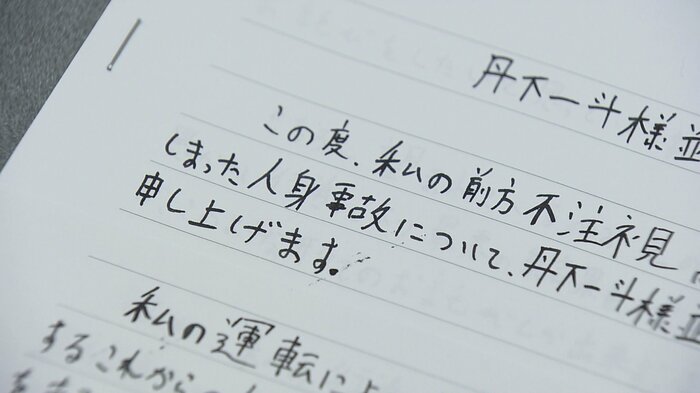 丹下一斗様並
この度、私の前方不注視
しまった人身事故について、丹下一斗様並
申し上げます。
私の運転によ
するこれからの